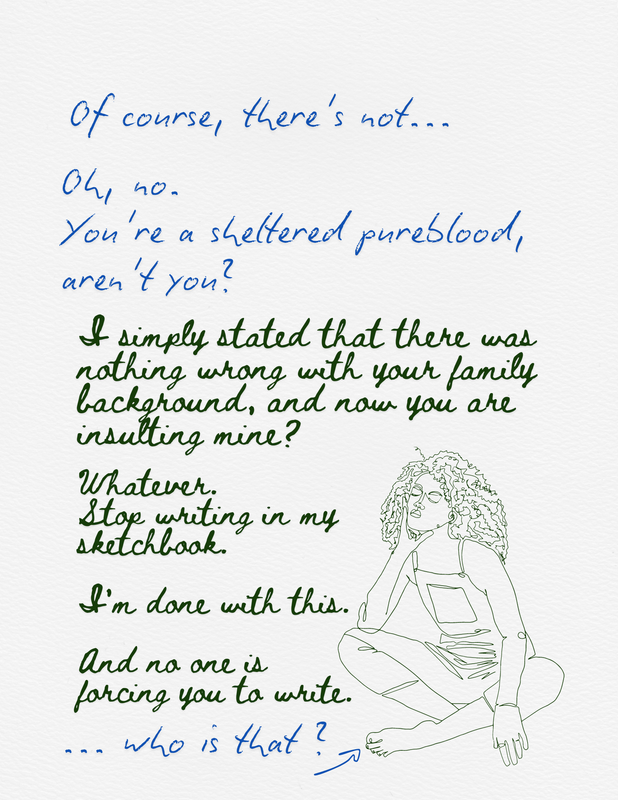 Of course, there's not...
Oh, no.
You're a sheltered pureblood,
aren't you?
I simply stated that there was
nothing wrong with your family
background, and now you are
insulting mine?
Whatever.
Stop writing in my
sketchbook.
I'm done with this.
And no one is
forcing you to write.
... who is that?